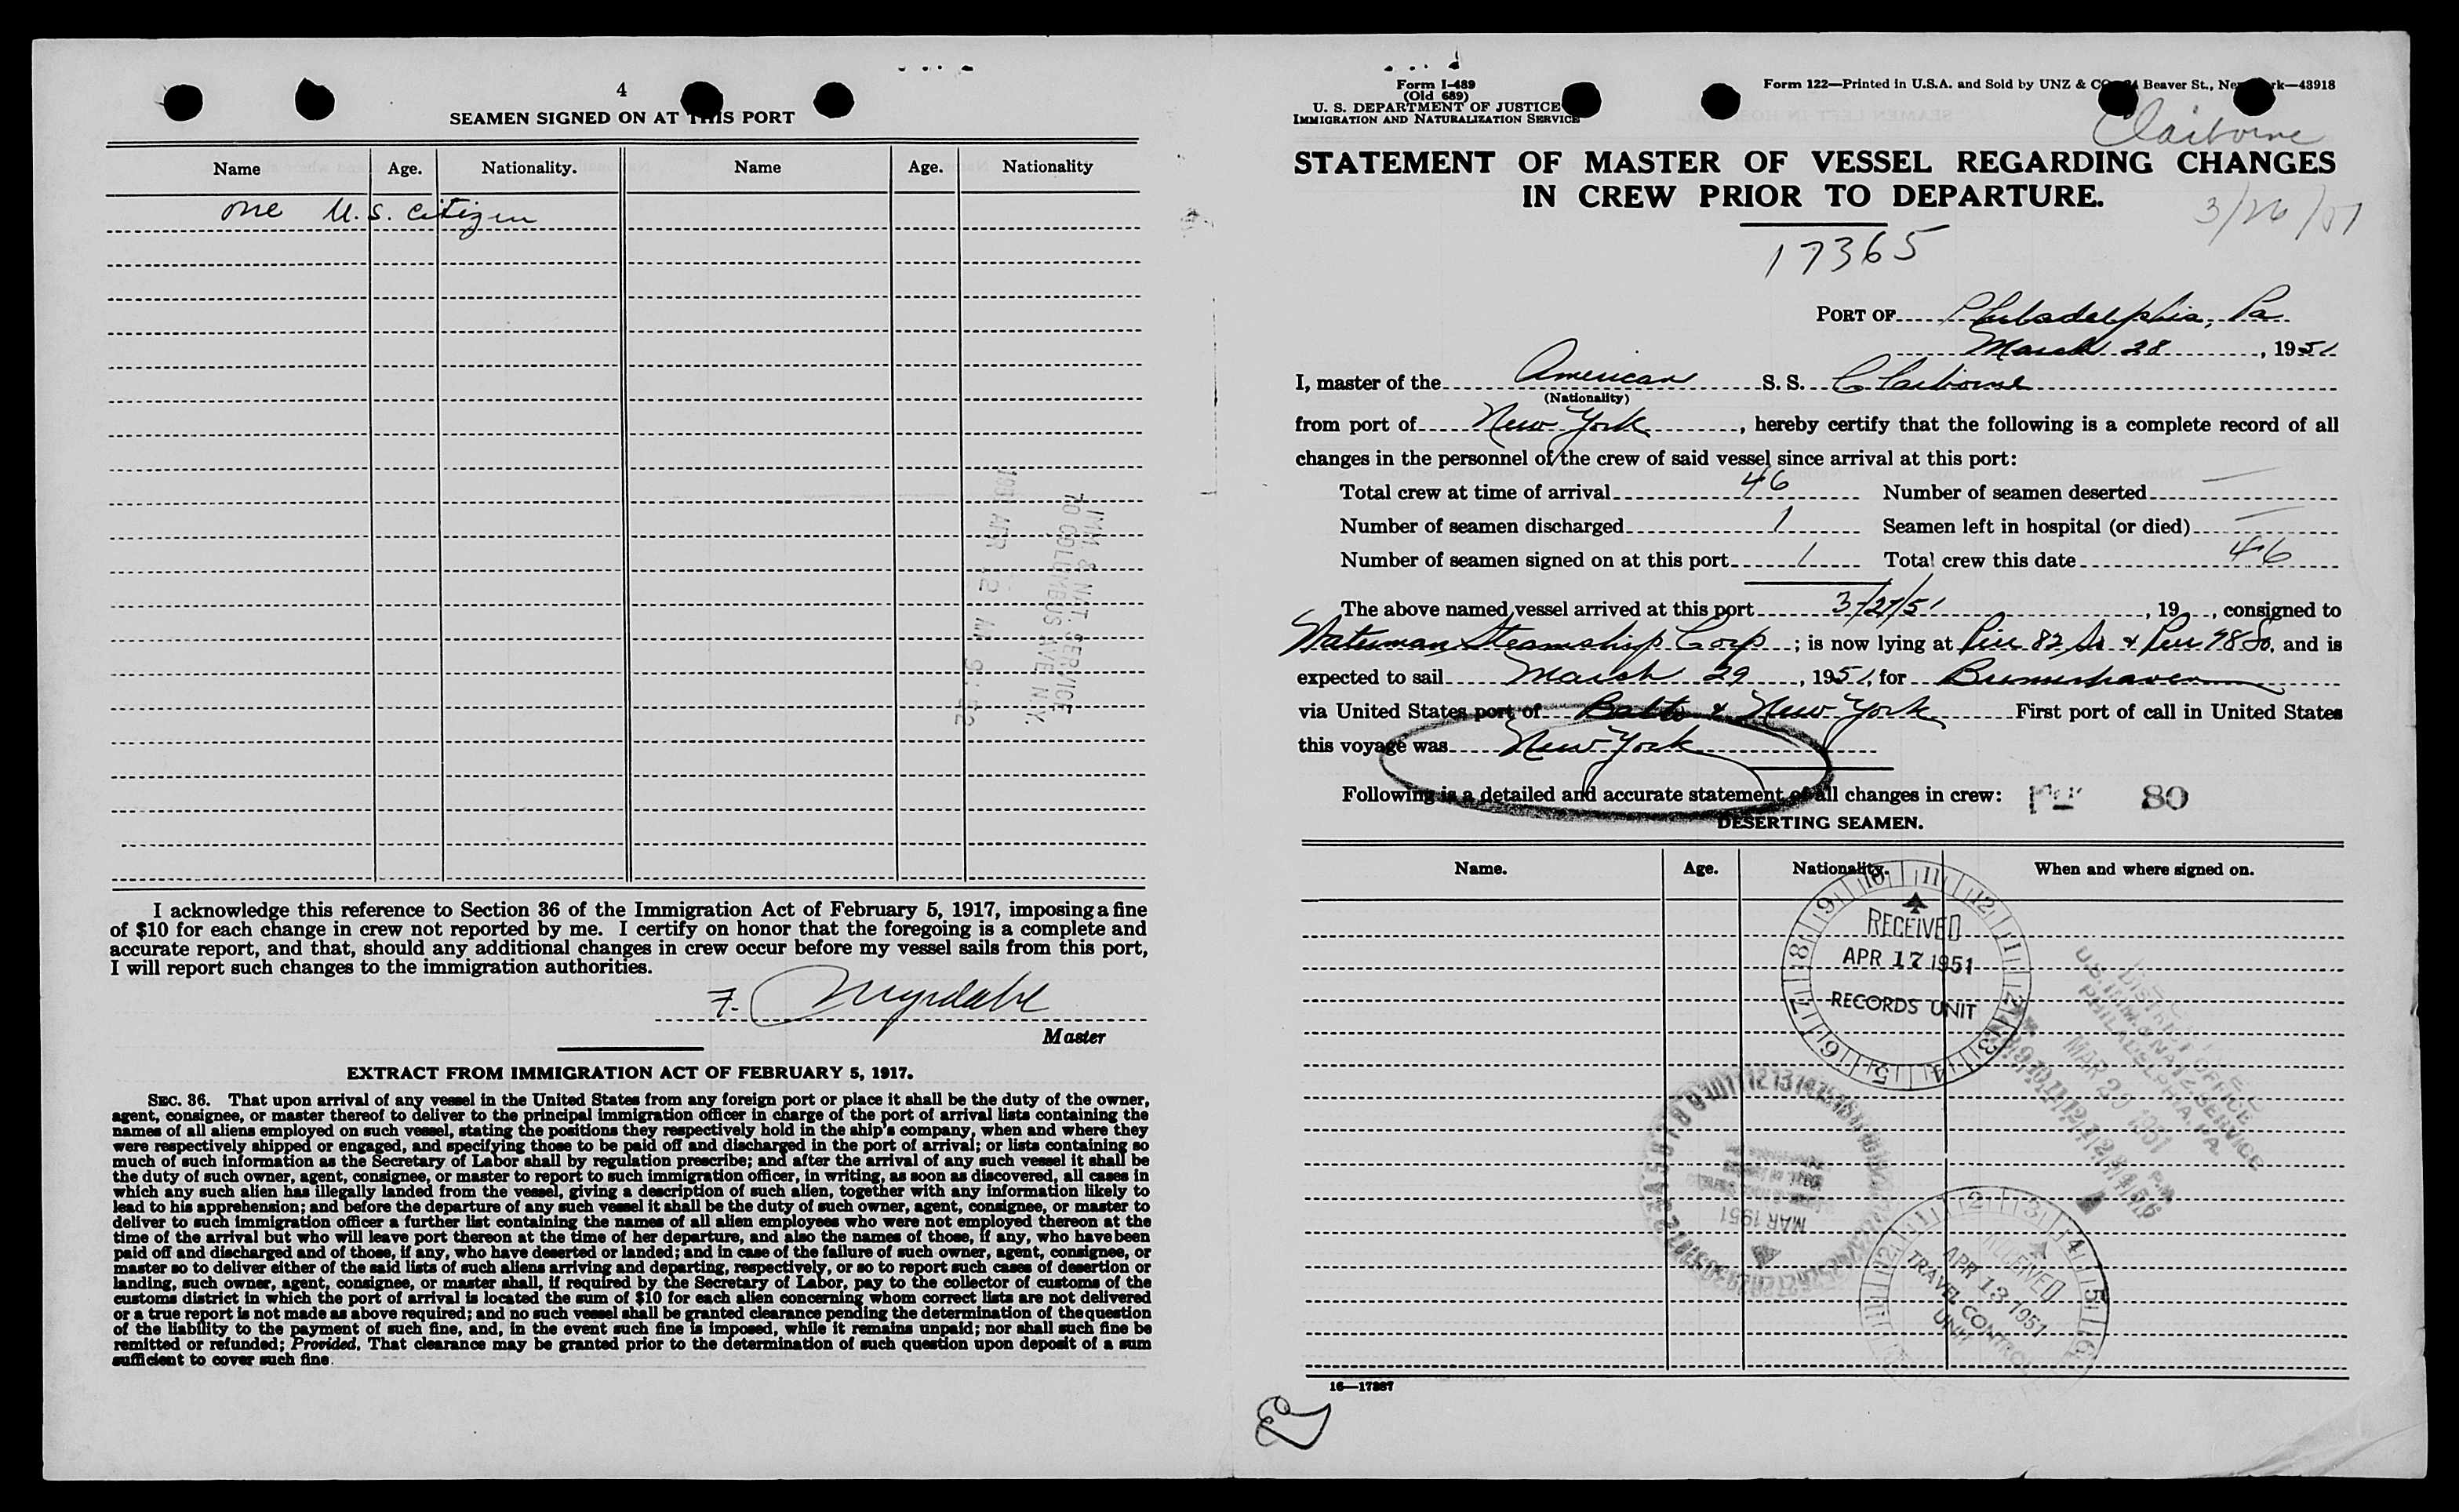 4
SEAMEN SIGNED ON AT THIS PORT
Name Age. Nationality. Name Age. Nationality
one U.S. citizen
IMM. & NAT. SERVICE
70 COLUMBUS AVE. N.Y.
I acknowledge this reference to Section 36 of the Immigration Act of February 5, 1917, imposing a fine
of $10 for each change in crew not reported by me. I certify on honor that the foregoing is a complete and
accurate report, and that, should any additional changes in crew occur before my vessel sails from this port,
I will report such changes to the immigration authorities.
F. Myrdahl
Master
EXTRACT FROM IMMIGRATION ACT OF FEBRUARY 5, 1917.
SEC. 36. That upon arrival of any vessel in the United States from any foreign port or place it shall be the duty of the owner,
agent, consignee, or master thereof to deliver to the principal immigration officer in charge of the port of arrival lists containing the
names of all aliens employed on such vessel, stating the positions they respectively hold in the ship's company, when and where they
were respectively shipped or engaged, and specifying those to be paid off and discharged in the port of arrival; or lists containing so
much of such information as the Secretary of Labor shall by regulation prescribe; and after the arrival of any such vessel it shall be
the duty of such owner, agent, consignee, or master to report to such immigration officer, in writing, as soon as discovered, all cases in
which any such alien has illegally landed from the vessel, giving a description of such alien, together with any information likely to
lead to his apprehension; and before the departure of any such vessel it shall be the duty of such owner, agent, consignee, or master to
deliver to such immigration officer a further list containing the names of all alien employees who were not employed thereon at the
time of the arrival but who will leave port thereon at the time of her departure, and also the names of those, if any, who have been
paid off and discharged and of those, if any, who have deserted or landed; and in case of the failure of such owner, agent, consignee, or
master so to deliver either of the said lists of such aliens arriving and departing, respectively, or so to report such cases of desertion or
landing, such owner, agent, consignee, or master shall, if required by the Secretary of Labor, pay to the collector of customs of the
customs district in which the port of arrival is located the sum of $10 for each alien concerning whom correct lists are not delivered
or a true report is not made as above required; and no such vessel shall be granted clearance pending the determination of the question
of the liability to the payment of such fine, and, in the event such fine is imposed, while it remains unpaid; nor shall such fine be
remitted or refunded; Provided, That clearance may be granted prior to the determination of such question upon deposit of a sum
sufficient to cover such fine.
Form I-489
(Old 689)
U. S. DEPARTMENT OF JUSTICE
IMMIGRATION AND NATURALIZATION SERVICE
Form 122—Printed in U.S.A. and Sold by UNZ & CO., 24 Beaver St., New York—43918
Claiborne
STATEMENT OF MASTER OF VESSEL REGARDING CHANGES
IN CREW PRIOR TO DEPARTURE.
3/26/51
17365
PORT OF Philadelphia, Pa
March 28, 1951
I, master of the American S. S. Claiborne
(Nationality)
from port of New York, hereby certify that the following is a complete record of all
changes in the personnel of the crew of said vessel since arrival at this port:
Total crew at time of arrival 46 Number of seamen deserted —
Number of seamen discharged 1 Seamen left in hospital (or died) —
Number of seamen signed on at this port 1 Total crew this date 46
The above named vessel arrived at this port 3/27/51, 19, consigned to
Waterman Steamship Corp; is now lying at Pier 82 So & Pier 98 So, and is
expected to sail March 29, 1951, for Bremerhaven
via United States port of Balto & New York First port of call in United States
this voyage was New York
Following is a detailed and accurate statement of all changes in crew:
80
DESERTING SEAMEN.
Name. Age. Nationality. When and where signed on.
RECEIVED
APR 17 1951
RECORDS UNIT
DISTRICT OFFICE
U.S. IMM. & NAT'Z. SERVICE
PHILADELPHIA, PA.
MAR 29 1951
MAR 1951
RECEIVED
APR 13 1951
TRAVEL CONTROL
UNIT
16—17387